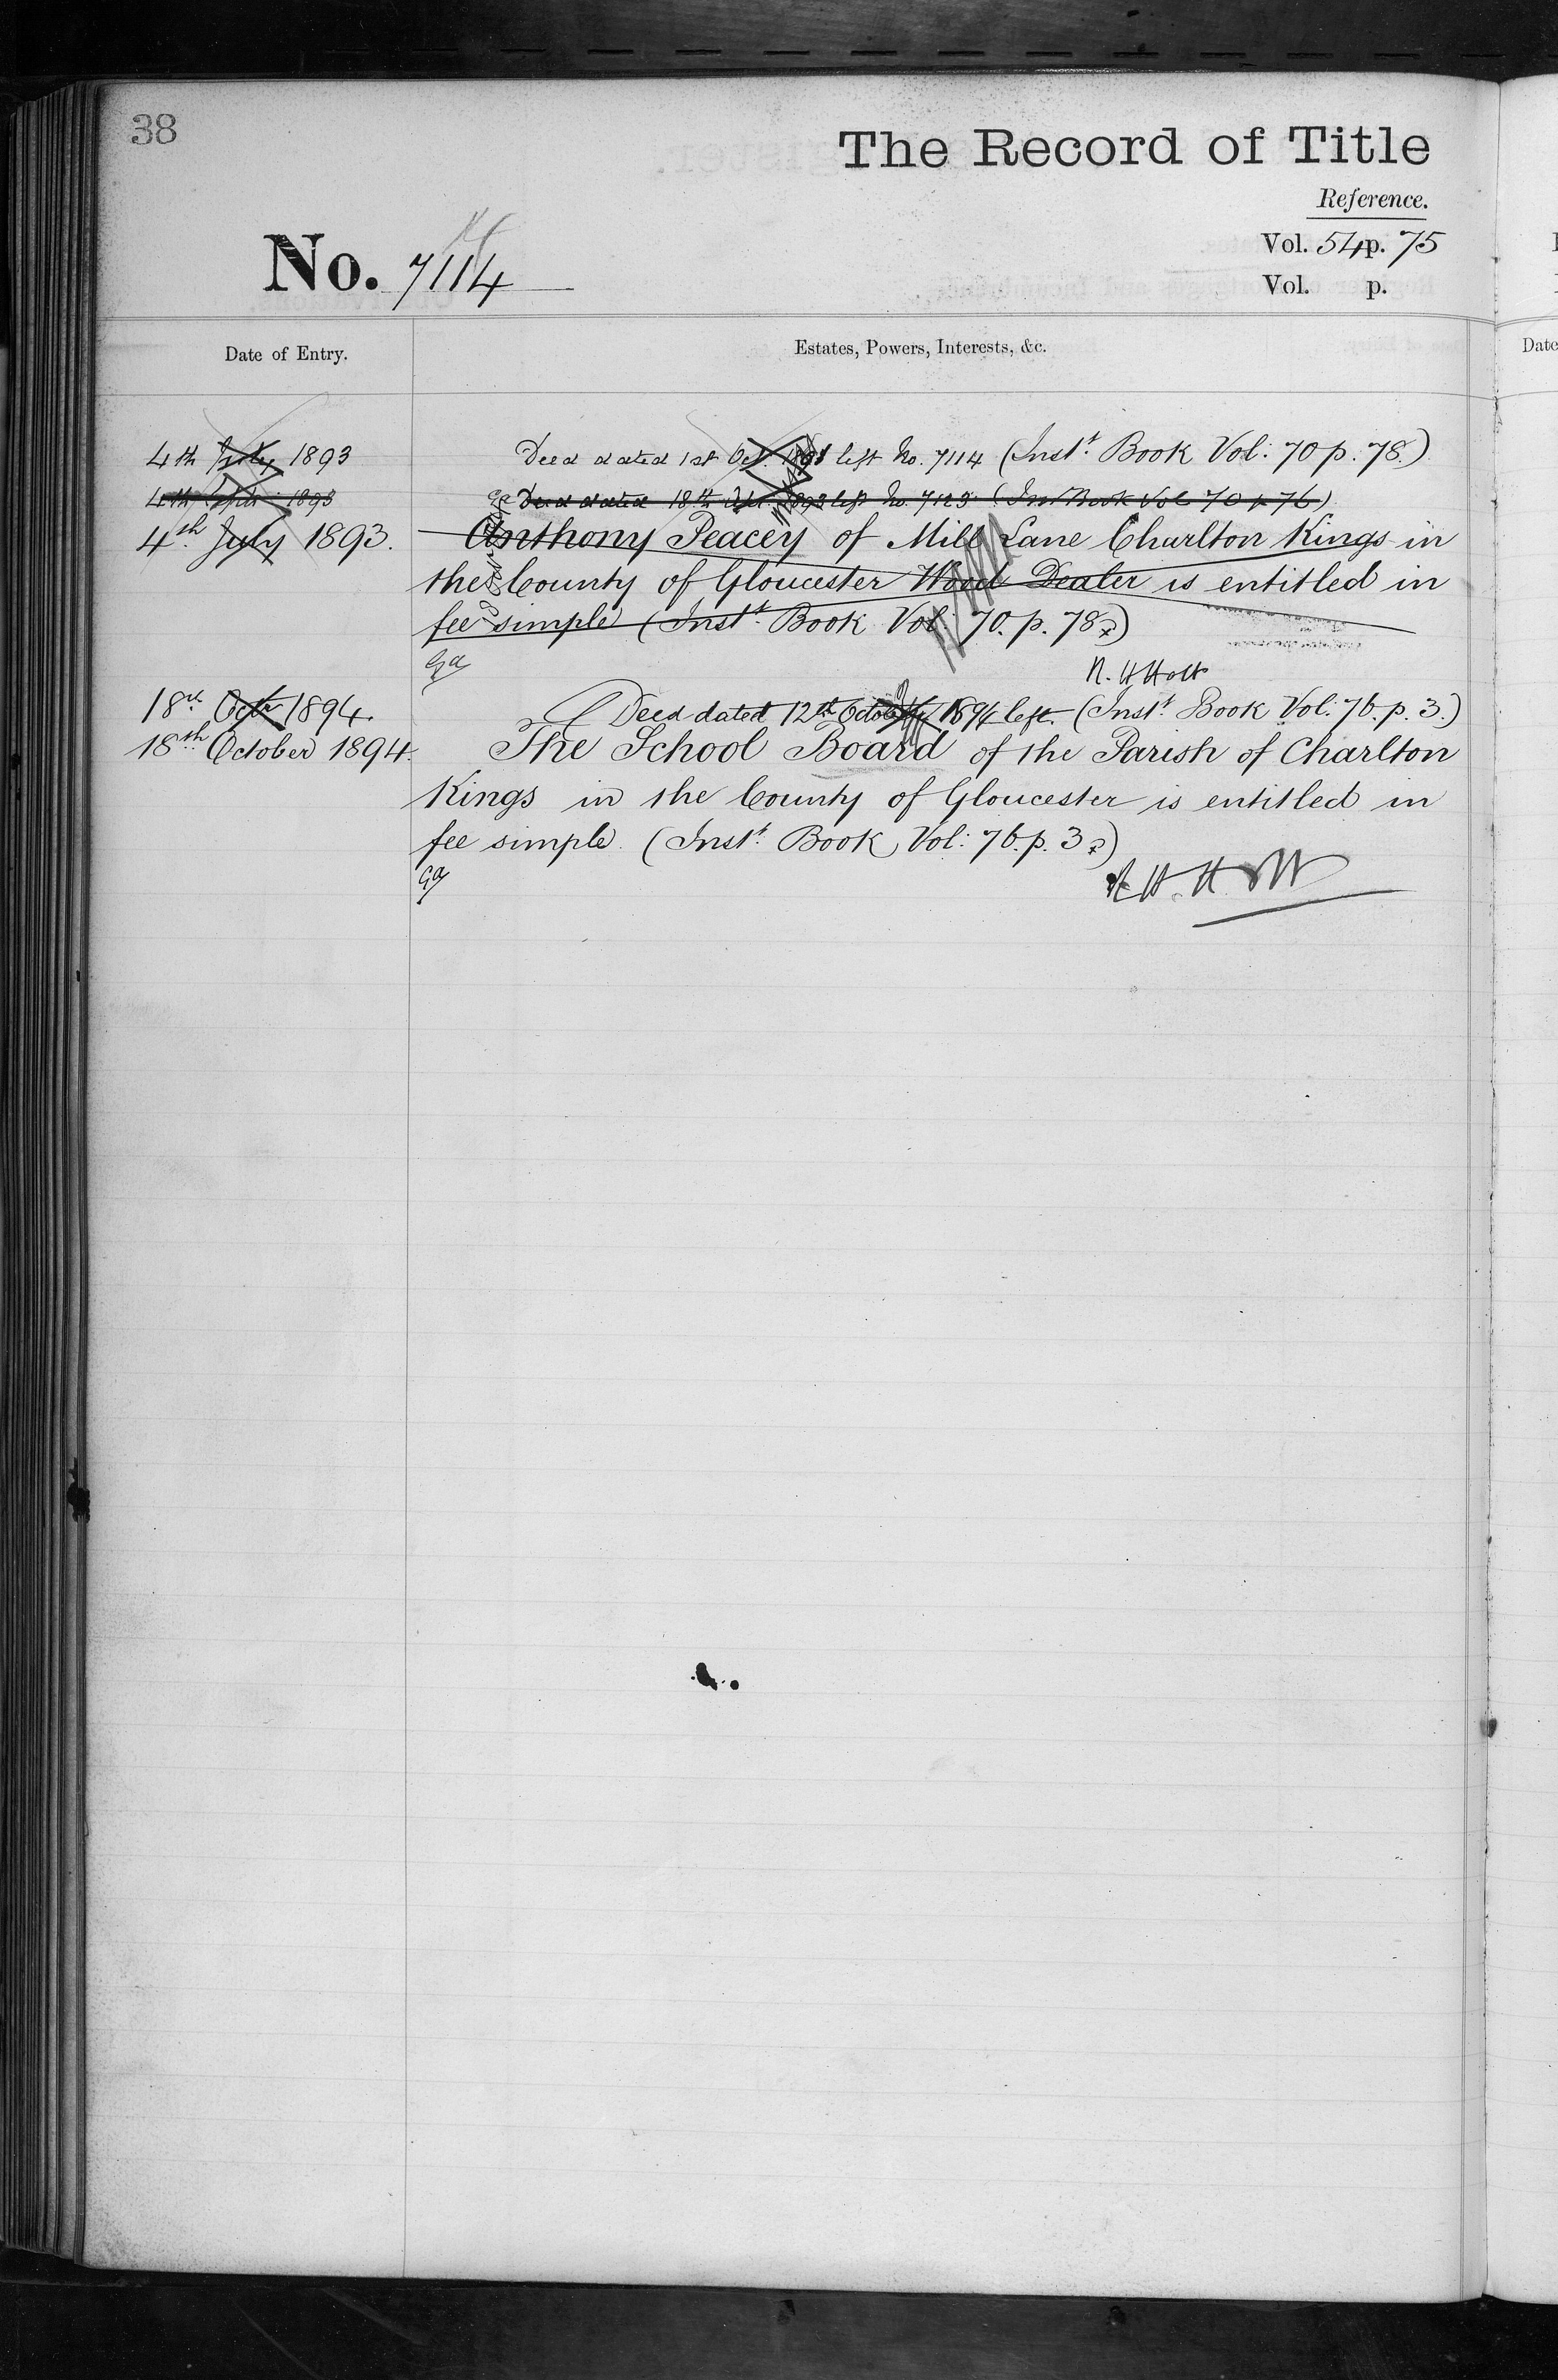 38
The Record of Title
Reference.
No. 7114
Vol. 54 p. 75
Vol. p.
Date of Entry.
Estates, Powers, Interests, &c.
4th July 1893 Deed dated 1st Oct. left No. 7114 (Inst.t Book Vol: 70 p. 78.)
4th 1893 Deed dated 18th 1893 left No. 7123 (Inst Book Vol 70 p 76)
4th July 1893. Anthony Peacey of Mill Lane Charlton Kings in
the County of Gloucester Wood Dealer is entitled in
fee simple (Inst.t Book Vol: 70. p. 78.)
Ga
R. H Holt
18th Octr 1894. Deed dated 12th October 1894 left. (Inst.t Book Vol: 76. p. 3.)
18th October 1894. The School Board of the Parish of Charlton
Kings in the County of Gloucester is entitled in
fee simple. (Inst.t Book Vol: 76. p. 3.)
Ga
R. H. Holt
Date